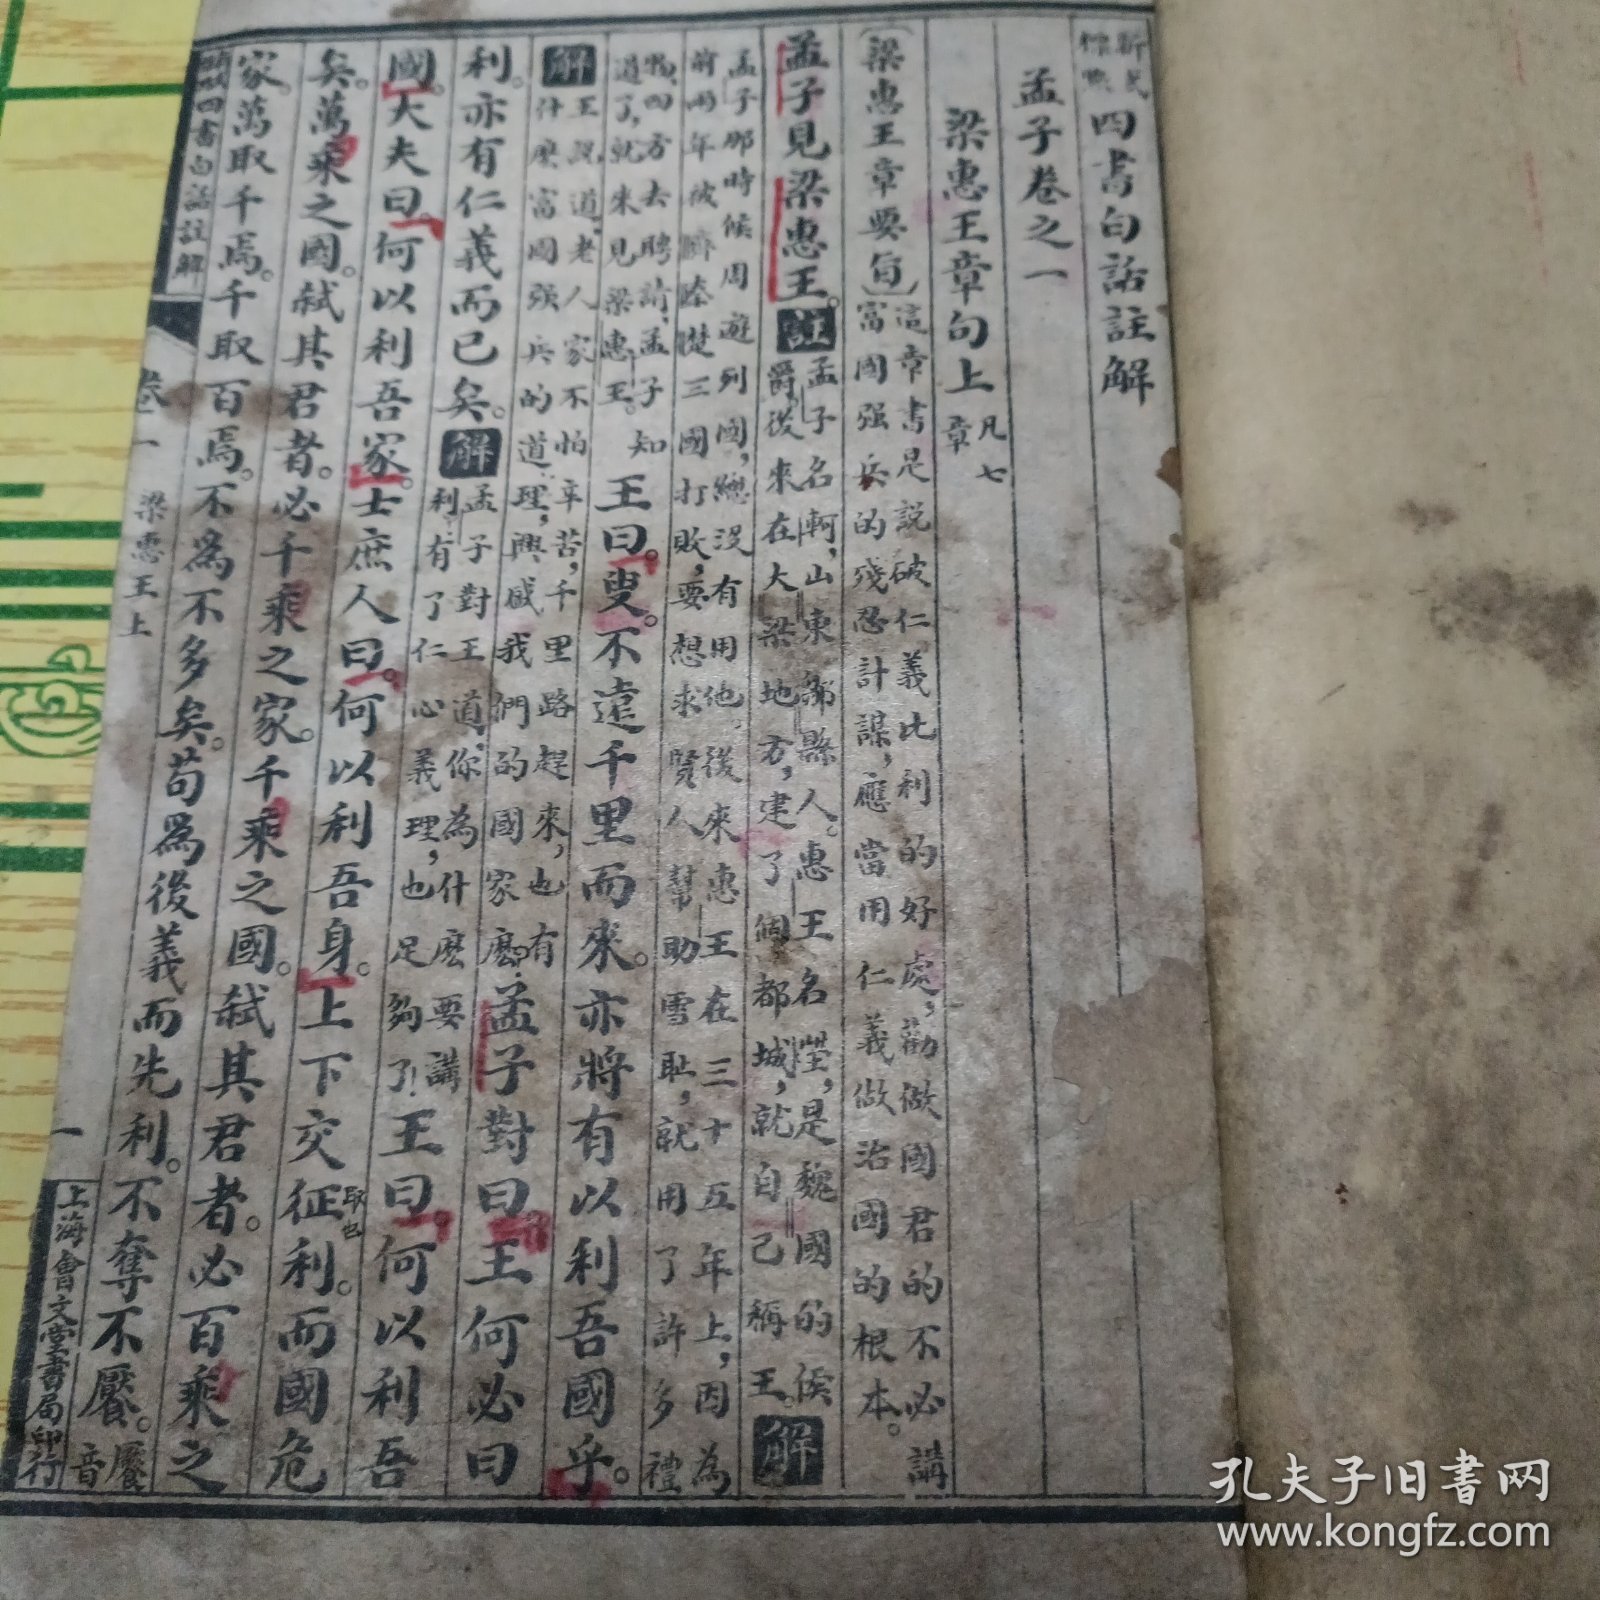 新式標點四書白話註解
孟子卷之一
梁惠王章句上 凡七章
(梁惠王章要旨)這章書是說破仁義比利的好處,勸做國君的不必講富國强兵的殘忍計謀,應當用仁義做治國的根本。
孟子見梁惠王。註孟子名軻,山東鄒縣人。惠王名罃,是魏國的侯爵,後來在大梁地方,建了個都城,就自己稱王。解
孟子那時候周遊列國,總沒有用他,後來惠王在三十五年上,因為前兩年被齊秦楚三國打敗,要想求賢人幫助雪恥,就用了許多禮
物,四方去聘請,孟子知道了,就來見梁惠王。王曰。叟。不遠千里而來。亦將有以利吾國乎。
解王說道,老人家不怕辛苦,千里路趕來,也有什麽富國强兵的道理,興盛我們的國家麽。孟子對曰王何必曰
利。亦有仁義而已矣。解孟子對王道,你為什麽要講利,有了仁心義理,也足夠了!王曰。何以利吾
國。大夫曰何以利吾家。士庶人曰。何以利吾身。上下交征取也利。而國危
矣。萬乘之國。弒其君者。必千乘之家。千乘之國。弒其君者。必百乘之
家。萬取千焉。千取百焉。不為不多矣。苟為後義而先利。不奪不饜。饜音
四書白話註解
卷一 梁惠王上
一
上海會文堂書局印行
孔夫子旧书网
www.kongfz.com